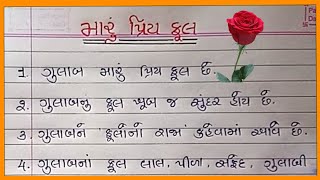 મારું પ્રિય ફૂલ
1. ગુલાબ મારું પ્રિય ફૂલ છે.
૨. ગુલાબનું ફૂલ ખૂબ જ સુંદર હોય છે.
૩ ગુલાબને 'ફૂલોનો રાજા' કહેવામાં આવે છે.
4. ગુલાબનાં ફૂલ લાલ, પીળા, સફેદ, ગુલાબી